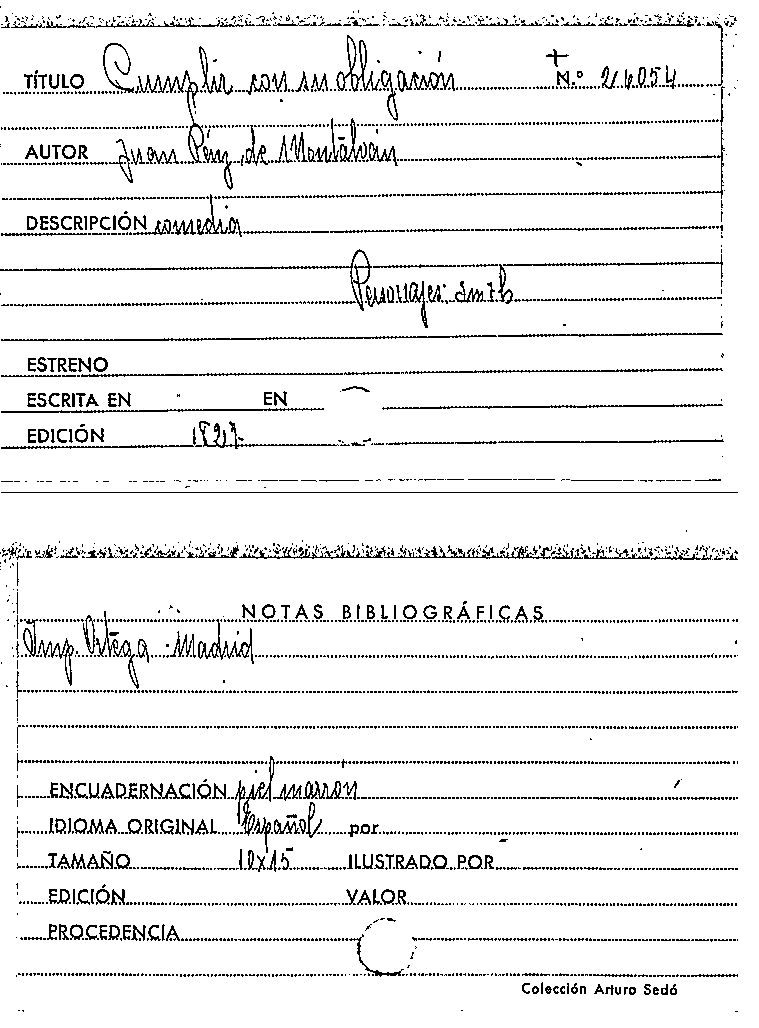 TÍTULO Cumplir con su obligación N.º
AUTOR Juan Pérez de Montalván
DESCRIPCIÓN comedia
Personajes:
ESTRENO
ESCRITA EN EN
EDICIÓN 1827
NOTAS BIBLIOGRÁFICAS
Imp. Ortega - Madrid
ENCUADERNACIÓN piel marrón
IDIOMA ORIGINAL Español por
TAMAÑO 10x15 ILUSTRADO POR
EDICIÓN VALOR
PROCEDENCIA
Colección Arturo Sedó